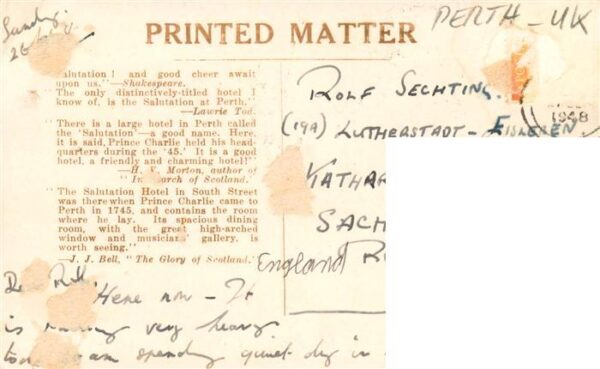 Sunday.
PERTH - UK
PRINTED MATTER
"Salutation! and good cheer await
upon us."—Shakespeare.
"The only distinctively-titled hotel I
know of, is the Salutation at Perth."
—Lawrie Tod.
"There is a large hotel in Perth called
the 'Salutation'—a good name. Here,
it is said, Prince Charlie held his head-
quarters during the '45.' It is a good
hotel, a friendly and charming hotel!"
—H. V. Morton, author of
"In search of Scotland.
"The Salutation Hotel in South Street
was there when Prince Charlie came to
Perth in 1745, and contains the room
where he lay. Its spacious dining
room, with the great high-arched
window and musicians' gallery, is
worth seeing."
—J. J. Bell, "The Glory of Scotland."
1948
ROLF SECHTING.
(19A) LUTHERSTADT - EISLEBEN
KATHAR
SACH
England R
Dear Rolf,
Here now - It
is raining very heavy
am spending quiet day in